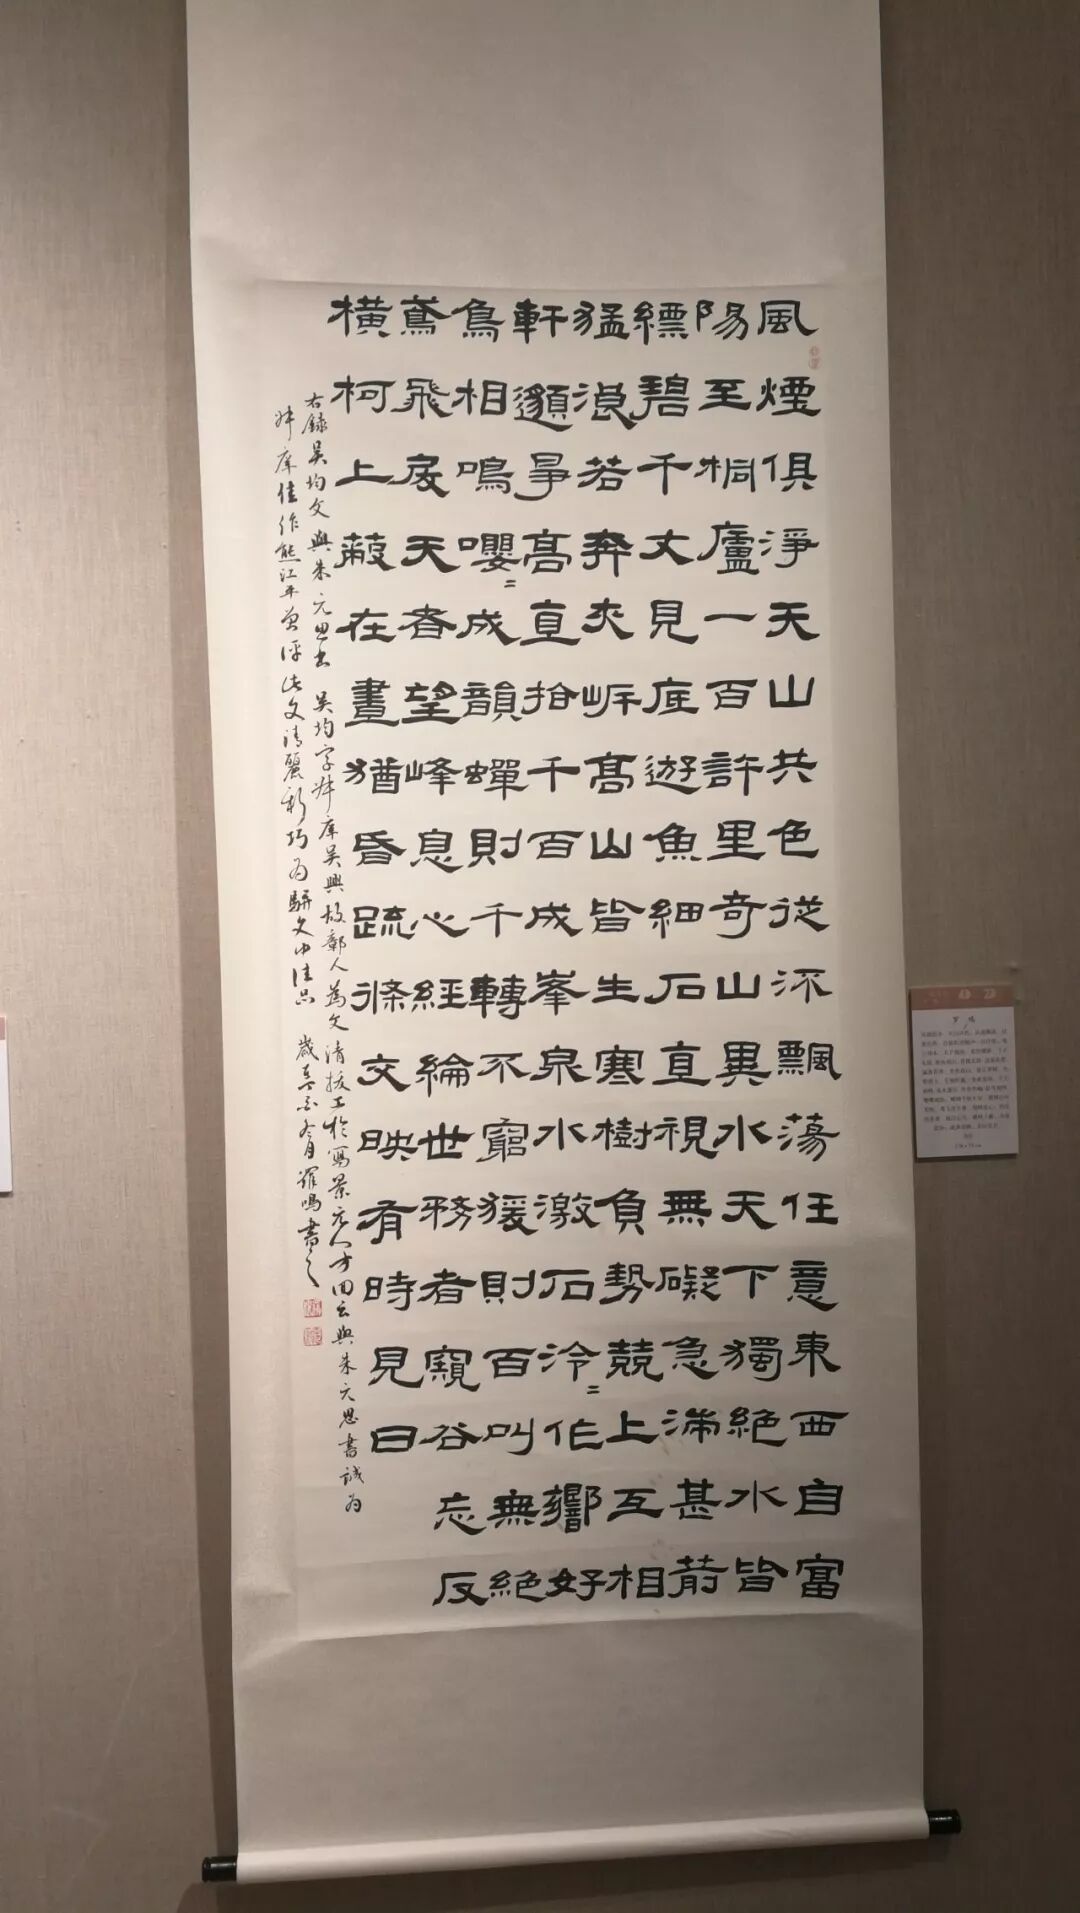 風煙俱淨天山共色從流飄蕩任意東西自富
陽至桐廬一百許里奇山異水天下獨絕水皆
縹碧千丈見底遊魚細石直視無礙急湍甚箭
猛浪若奔夾岸高山皆生寒樹負勢競上互相
軒邈爭高直指千百成峯泉水激石泠〻作響好
鳥相鳴嚶〻成韻蟬則千轉不窮猨則百叫無絕
鳶飛戾天者望峰息心經綸世務者窺谷忘反
橫柯上蔽在晝猶昏疏條交映有時見日
右錄吳均文與朱元思書 吳均字叔庠吳興故鄣人為文清拔工於寫景元人方回云與朱元思書誠為
叔庠佳作熊江平曾評此文清麗新巧為駢文中佳品 歲冬月羅鳴書之
罗鸣